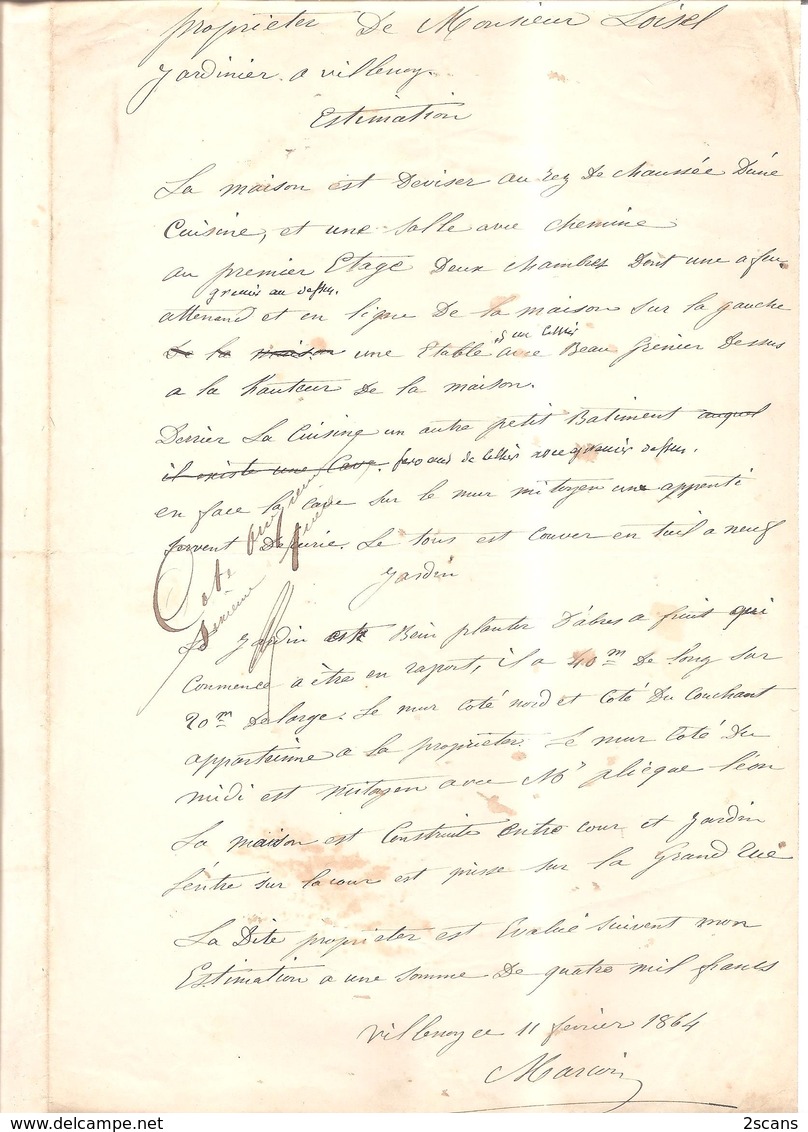 proprieter De Monsieur Loisel
jardinier a villenoy.
Estimation
La maison est Deviser au rez De chaussée Dúne
Cuisine, et une Salle avec chemine
au premier Etage Deux chambres Dont une a feu
grenier au dessus.
attenand et en ligne De la maison sur la gauche
De la maison une Etable avec Beau Grenier Dessus
a la hauteur De la maison.
Derrier La Cuisine un autre petit Batiment auquel
il existe une Cave. de cellier avec grenier dessus.
en face la cave sur le mur mitoyen une appenti
servent Decurie. Le tous est couver en tuil a neuf
Jardin
Cote onzieme
Le Jardin est Bein planter D'abres a fruit qui
Commence a être en raport, il a 40m De long sur
20m De large. Le mur Coté nord et Coté Du Couchant
appartienne a la proprieter. Le mur Coté Du
midi est mitoyen avec Mr plicque léon
La maison est Construite entre cour et Jardin
l'entre sur la cour est prisse sur la Grand Rue
La Dite proprieter est Evalué suivent mon
Estimation a une somme De quatre mil francs
Villenoy ce 11 fevrier 1864
2scans